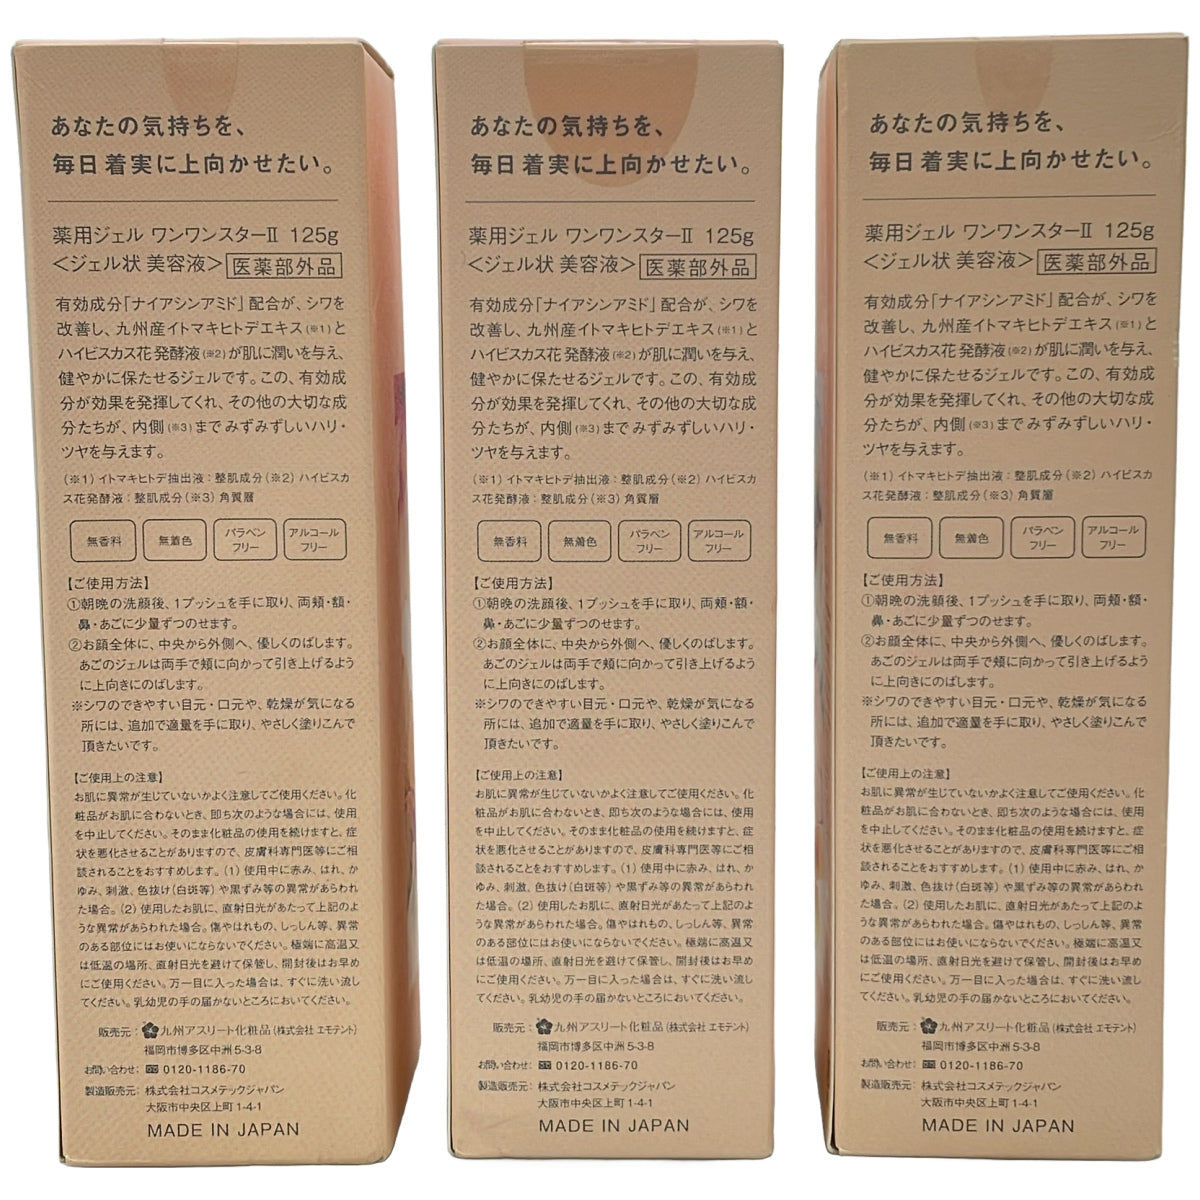 あなたの気持ちを、
毎日 着実に上向かせたい。
薬用ジェル ワンワンスターⅡ 125g
<ジェル状 美容液> 医薬部外品
有効成分「ナイアシンアミド」配合が、シワを
改善し、九州産イトマキヒトデエキス(※1)と
ハイビスカス花発酵液(※2)が肌に潤いを与え、
健やかに保たせるジェルです。この、有効成
分が効果を発揮してくれ、その他の大切な成
分たちが、内側(※3)までみずみずしいハリ・
ツヤを与えます。
(※1)イトマキヒトデ抽出液：整肌成分(※2)ハイビスカ
ス花発酵液：整肌成分(※3)角質層
無香料 無着色 パラベンフリー アルコールフリー
【ご使用方法】
①朝晩の洗顔後、1プッシュを手に取り、両頬・額・
鼻・あごに少量ずつのせます。
②お顔全体に、中央から外側へ、優しくのばします。
あごのジェルは両手で頬に向かって引き上げるよう
に上向きにのばします。
※シワのできやすい目元・口元や、乾燥が気になる
所には、追加で適量を手に取り、やさしく塗りこんで
頂きたいです。
【ご使用上の注意】
お肌に異常が生じていないかよく注意してご使用ください。化
粧品がお肌に合わないとき、即ち次のような場合には、使用
を中止してください。そのまま化粧品の使用を続けますと、症
状を悪化させることがありますので、皮膚科専門医等にご相
談されることをおすすめします。(1)使用中に赤み、はれ、か
ゆみ、刺激、色抜け(白斑等)や黒ずみ等の異常があらわれ
た場合。(2)使用したお肌に、直射日光があたって上記のよ
うな異常があらわれた場合。傷やはれもの、しっしん等、異常
のある部位にはお使いにならないでください。極端に高温又
は低温の場所、直射日光を避けて保管し、開封後はお早め
にご使用ください。万一目に入った場合は、すぐに洗い流し
てください。乳幼児の手の届かないところにおいてください。
販売元：九州アスリート化粧品(株式会社 エモテント)
福岡市博多区中洲5-3-8
お問い合わせ：0120-1186-70
製造販売元：株式会社コスメテックジャパン
大阪市中央区上町1-4-1
MADE IN JAPAN
あなたの気持ちを、
毎日 着実に上向かせたい。
薬用ジェル ワンワンスターⅡ 125g
<ジェル状 美容液> 医薬部外品
有効成分「ナイアシンアミド」配合が、シワを
改善し、九州産イトマキヒトデエキス(※1)と
ハイビスカス花発酵液(※2)が肌に潤いを与え、
健やかに保たせるジェルです。この、有効成
分が効果を発揮してくれ、その他の大切な成
分たちが、内側(※3)までみずみずしいハリ・
ツヤを与えます。
(※1)イトマキヒトデ抽出液：整肌成分(※2)ハイビスカ
ス花発酵液：整肌成分(※3)角質層
無香料 無着色 パラベンフリー アルコールフリー
【ご使用方法】
①朝晩の洗顔後、1プッシュを手に取り、両頬・額・
鼻・あごに少量ずつのせます。
②お顔全体に、中央から外側へ、優しくのばします。
あごのジェルは両手で頬に向かって引き上げるよう
に上向きにのばします。
※シワのできやすい目元・口元や、乾燥が気になる
所には、追加で適量を手に取り、やさしく塗りこんで
頂きたいです。
【ご使用上の注意】
お肌に異常が生じていないかよく注意してご使用ください。化
粧品がお肌に合わないとき、即ち次のような場合には、使用
を中止してください。そのまま化粧品の使用を続けますと、症
状を悪化させることがありますので、皮膚科専門医等にご相
談されることをおすすめします。(1)使用中に赤み、はれ、か
ゆみ、刺激、色抜け(白斑等)や黒ずみ等の異常があらわれ
た場合。(2)使用したお肌に、直射日光があたって上記のよ
うな異常があらわれた場合。傷やはれもの、しっしん等、異常
のある部位にはお使いにならないでください。極端に高温又
は低温の場所、直射日光を避けて保管し、開封後はお早め
にご使用ください。万一目に入った場合は、すぐに洗い流し
てください。乳幼児の手の届かないところにおいてください。
販売元：九州アスリート化粧品(株式会社 エモテント)
福岡市博多区中洲5-3-8
お問い合わせ：0120-1186-70
製造販売元：株式会社コスメテックジャパン
大阪市中央区上町1-4-1
MADE IN JAPAN
あなたの気持ちを、
毎日 着実に上向かせたい。
薬用ジェル ワンワンスターⅡ 125g
<ジェル状 美容液> 医薬部外品
有効成分「ナイアシンアミド」配合が、シワを
改善し、九州産イトマキヒトデエキス(※1)と
ハイビスカス花発酵液(※2)が肌に潤いを与え、
健やかに保たせるジェルです。この、有効成
分が効果を発揮してくれ、その他の大切な成
分たちが、内側(※3)までみずみずしいハリ・
ツヤを与えます。
(※1)イトマキヒトデ抽出液：整肌成分(※2)ハイビスカ
ス花発酵液：整肌成分(※3)角質層
無香料 無着色 パラベンフリー アルコールフリー
【ご使用方法】
①朝晩の洗顔後、1プッシュを手に取り、両頬・額・
鼻・あごに少量ずつのせます。
②お顔全体に、中央から外側へ、優しくのばします。
あごのジェルは両手で頬に向かって引き上げるよう
に上向きにのばします。
※シワのできやすい目元・口元や、乾燥が気になる
所には、追加で適量を手に取り、やさしく塗りこんで
頂きたいです。
【ご使用上の注意】
お肌に異常が生じていないかよく注意してご使用ください。化
粧品がお肌に合わないとき、即ち次のような場合には、使用
を中止してください。そのまま化粧品の使用を続けますと、症
状を悪化させることがありますので、皮膚科専門医等にご相
談されることをおすすめします。(1)使用中に赤み、はれ、か
ゆみ、刺激、色抜け(白斑等)や黒ずみ等の異常があらわれ
た場合。(2)使用したお肌に、直射日光があたって上記のよ
うな異常があらわれた場合。傷やはれもの、しっしん等、異常
のある部位にはお使いにならないでください。極端に高温又
は低温の場所、直射日光を避けて保管し、開封後はお早め
にご使用ください。万一目に入った場合は、すぐに洗い流し
てください。乳幼児の手の届かないところにおいてください。
販売元：九州アスリート化粧品(株式会社 エモテント)
福岡市博多区中洲5-3-8
お問い合わせ：0120-1186-70
製造販売元：株式会社コスメテックジャパン
大阪市中央区上町1-4-1
MADE IN JAPAN